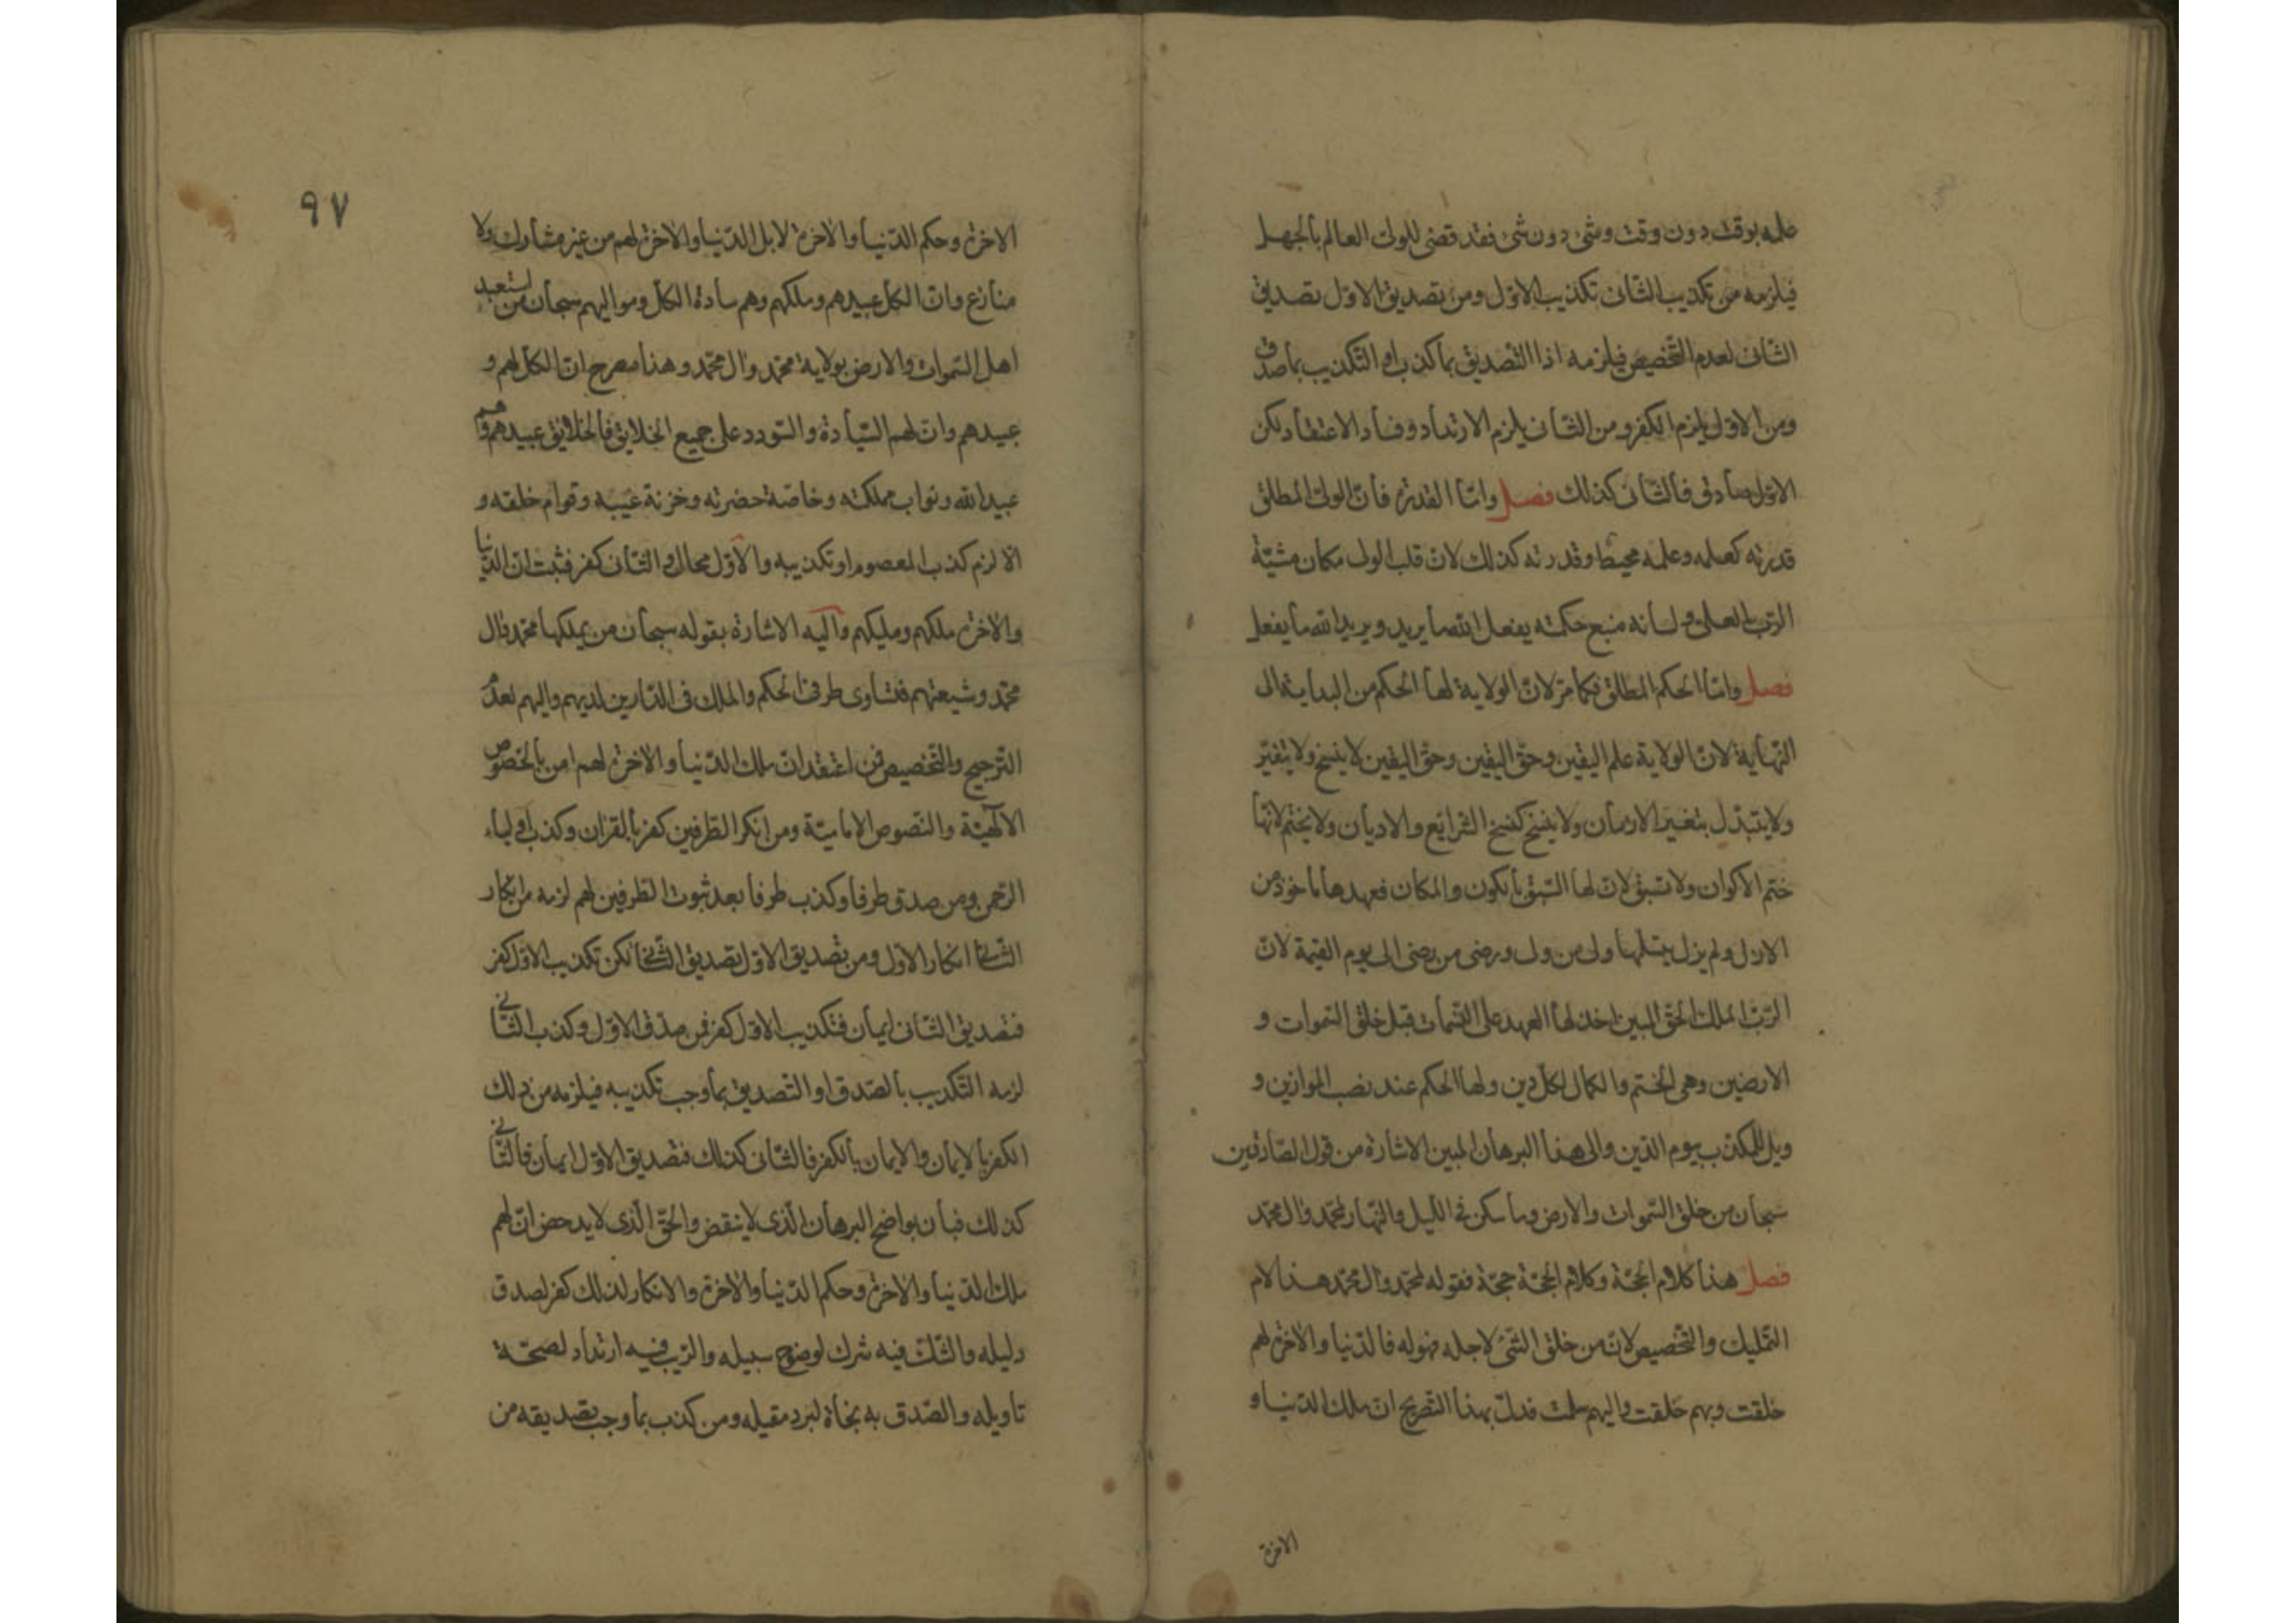 علمه بوقت دون وقت وشئ دون شئ فقد قضى للولى العالم بالجهل
فيلزمه من تكذيب الثانى تكذيب الاوّل ومن تصديق الاوّل تصديق
الثانى لعدم التخصيص فيلزمه اذا التصديق بما كذب او التكذيب بما صدق
ومن الاوّل يلزم الكفر ومن الثانى يلزم الارتداد وفساد الاعتقاد لكن
الاوّل صادق فالثانى كذلك فصل وامّا القدرة فانّ الولىّ المطلق
قدرته كعلمه وعلمه محيط وقدرته كذلك لانّ قلب الولى مكان مشيّة
الربّ العلى ولسانه منبع حكمته يفعل الله ما يريد ويريد الله ما يفعل
فصل وامّا الحكم المطلق فكما مرّ لانّ الولاية لها الحكم من البداية الى
النّهاية لانّ الولاية علم اليقين وحقّ اليقين وحقّ اليقين لا ينسخ ولا يتغيّر
ولا يتبدّل بتغيّر الازمان ولا ينسخ كنسخ الشرايع والاديان ولا يختم لانّها
ختم الاكوان ولا تسبق لانّ لها السّبق بالكون والمكان فعهدها ماخوذ من
الازل ولم يزل يتسلّمها ولى من ولى ورضى من رضى الى يوم القيمة لانّ
الربّ الملك الحقّ المبين اخذ لها العهد على النّسمات قبل خلق السّموات و
الارضين وهى الختم والكمال لكلّ دين ولها الحكم عند نصب الموازين و
ويل للمكذّب بيوم الدّين والى هذا البرهان المبين الاشارة من قول الصّادقين
سبحان من خلق السّموات والارض وما سكن فى الليل والنّهار لمحمّد وآل محمّد
فصل هذا كلام الحجّة وكلام الحجّة حجّة فقوله لمحمّد وآل محمّد هذا لام
التمليك والتّخصيص لانّ من خلق الشّئ لاجله فهو له فالدّنيا والآخرة لهم
خلقت وبهم خلقت واليهم سلمت فدلّ بهذا التصريح انّ ملك الدّنيا و
الاخرة
٩٧
الاخرة وحكم الدّنيا والآخرة لا بل الدّنيا والآخرة لهم من غير مشارك ولا
منازع وانّ الكلّ عبيدهم وملكهم وهم سادة الكلّ ومواليهم سبحان من استعبد
اهل السّموات والارض بولاية محمّد وآل محمّد وهذا مصرح انّ الكلّ لهم و
عبيدهم وانّ لهم السّيادة والسّودد على جميع الخلايق فالخلايق عبيدهم وهم
عبيد الله ونواب مملكته وخاصّة حضرته وخزنة غيبه وقوام خلقه و
الّا لزم كذب المعصوم او تكذيبه والاوّل محال والثانى كفر فثبت انّ الدّنيا
والآخرة ملكهم ومليكهم واليه الاشارة بقوله سبحان من يملكها محمّد وآل
محمّد وشيعتهم فتساوى طرفى الحكم والملك فى الدّارين لديهم واليهم لعدم
الترجيح والتّخصيص فمن اعتقد انّ ملك الدّنيا والآخرة لهم امن بالنّصوص
الالهيّة والنّصوص الاماميّة ومن انكر الطّرفين كفر بالقران وكذب اولياء
الرّحمن ومن صدق طرفا وكذب طرفا بعد ثبوت الطّرفين لهم لزمه من انكار
الثانى انكار الاوّل ومن تصديق الاوّل تصديق الثانى لكن تكذيب الاوّل كفر
فتصديق الثّانى ايمان فتكذيب الاوّل كفر فمن صدّق الاوّل وكذب الثّانى
لزمه التّكذيب بالصّدق او التصديق بما وجب تكذيبه فيلزمه من ذلك
الكفر بالايمان والايمان بالكفر فالثّانى كذلك فتصديق الاوّل ايمان فالثّانى
كذلك فبان بواضح البرهان الّذى لا ينقض والحقّ الّذى لا يدحض انّ لهم
ملك الدّنيا والآخرة وحكم الدّنيا والآخرة والانكار لذلك كفر لصدق
دليله والشّك فيه شرك لوضوح سبيله والرّيب فيه ارتداد لصحّة
تاويله والصّدق به نجاة لبرد مقيله ومن كذب بما وجب تصديقه من